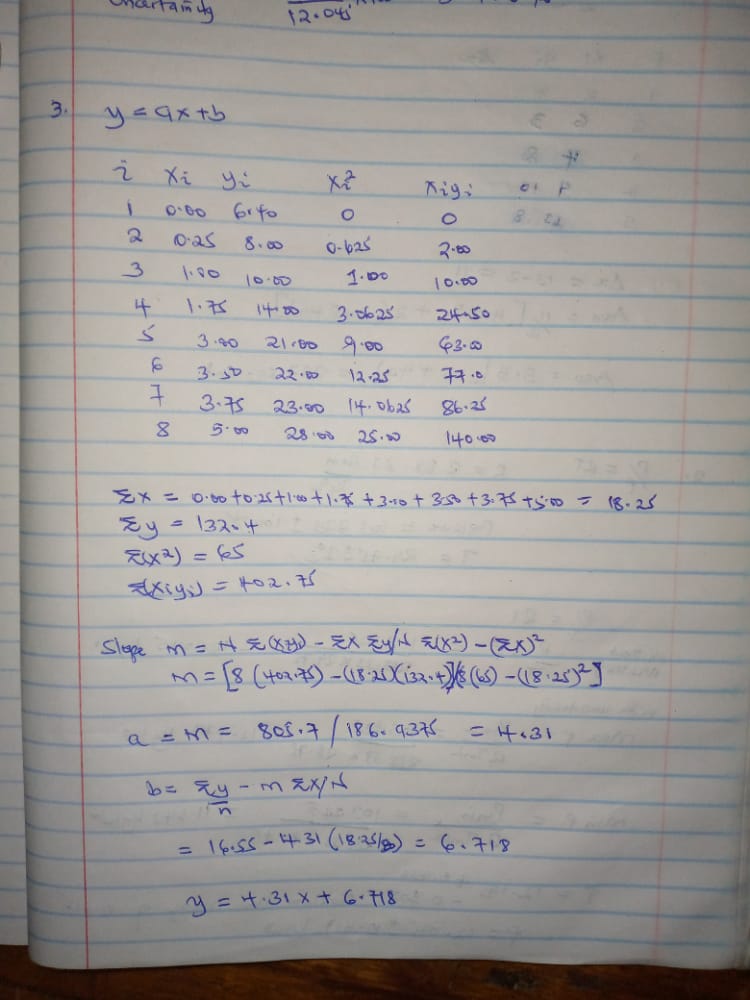 Uncertainty 12.04
3. y = ax + b
i xi yi xi² xiyi
1 0.00 6.40 0 0
2 0.25 8.00 0.625 2.00
3 1.00 10.00 1.00 10.00
4 1.75 14.00 3.0625 24.50
5 3.00 21.00 9.00 63.00
6 3.50 22.00 12.25 77.0
7 3.75 23.00 14.0625 86.25
8 5.00 28.00 25.00 140.00
Σx = 0.00+0.25+1.00+1.75+3.00+3.50+3.75+5.00 = 18.25
Σy = 132.4
Σ(x²) = 65
Σ(xiyi) = 402.75
Slope m = N Σ(xy) - Σx Σy/N Σ(x²) - (Σx)²
m = [8(402.75) - (18.25)(132.4)/(8(65) - (18.25)²]
a = m = 805.7 / 186.9375 = 4.31
b = Σy/n - m Σx/N
= 16.55 - 4.31(18.25/8) = 6.718
y = 4.31x + 6.718